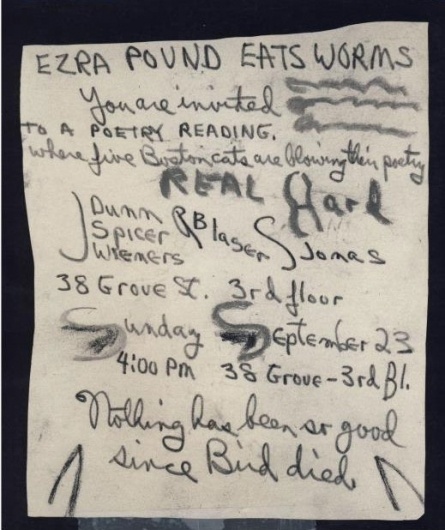 EZRA POUND EATS WORMS
You are invited
TO A POETRY READING.
where five Boston cats are blowing their poetry
REAL Hard
Dunn
Spicer RBlaser Jonas
Wieners
38 Grove St. 3rd floor
Sunday September 23
4:00 PM 38 Grove-3rd Fl.
Nothing has been so good
since Bird died